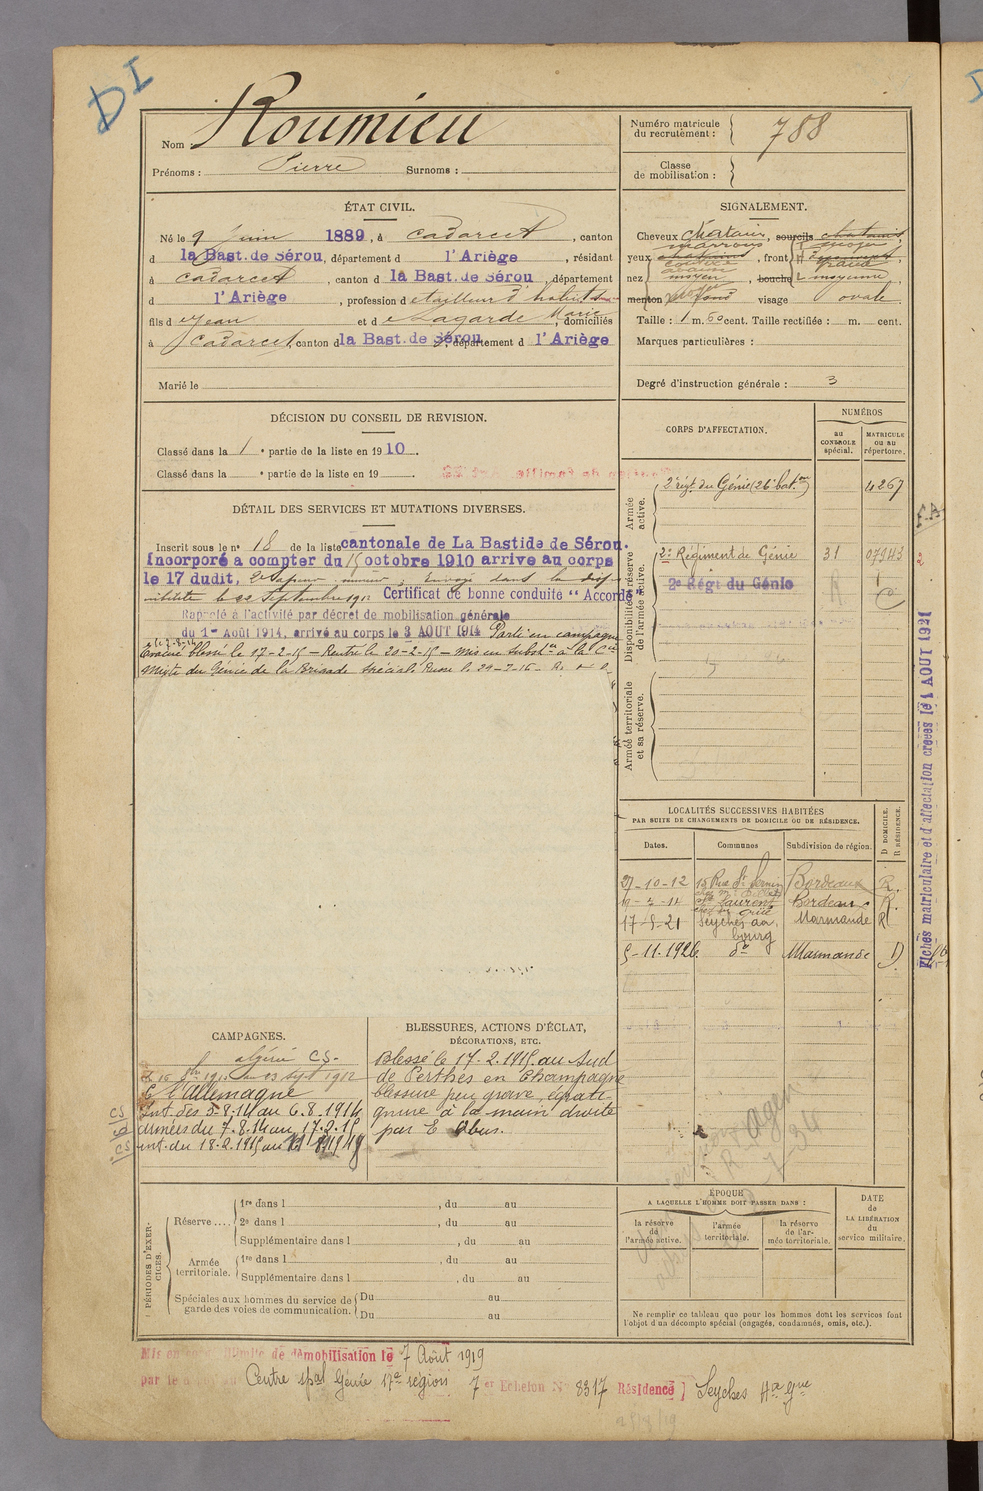 DI
Nom Roumieu
Prénoms : Pierre Surnoms :
Numéro matricule du recrutement : 788
Classe de mobilisation :
ÉTAT CIVIL.
Né le 9 Juin 1889, à Cadarcet, canton
d la Bast. de Sérou, département d l'Ariège, résidant
à Cadarcet, canton d la Bast. de Sérou, département
d l'Ariège, profession de tailleur d'habits
fils de Jean et de Lagarde Marie, domiciliés
à Cadarcet, canton d la Bast. de Sérou, département d l'Ariège
Marié le
SIGNALEMENT.
Cheveux Chatain, sourcils chatains,
yeux marrons, front
nez moyen, bouche moyenne
menton rond visage ovale
Taille : 1 m. 60 cent. Taille rectifiée : m. cent.
Marques particulières :
Degré d'instruction générale : 3
DÉCISION DU CONSEIL DE REVISION.
Classé dans la 1 e partie de la liste en 1910.
Classé dans la e partie de la liste en 19 .
DÉTAIL DES SERVICES ET MUTATIONS DIVERSES.
Inscrit sous le n° 18 de la liste cantonale de La Bastide de Sérou.
Incorporé à compter du 15 octobre 1910 arrive au corps
le 17 dudit, 2e Sapeur mineur, Envoyé dans la dispo
nibilité le 22 Septembre 1912 Certificat de bonne conduite "Accordé"
Rappelé à l'activité par décret de mobilisation générale
du 1er Août 1914, arrivé au corps le 3 AOUT 1914 Parti en campagne
le 7-8-14
Evacué blessé le 17-2-15 - Rentré le 20-2-15 - mis en subst ce à la Cie
Mixte du Génie de la Brigade spéciale Russe le 29-7-16 -
CORPS D'AFFECTATION.
NUMÉROS
au contrôle spécial.
MATRICULE ou au répertoire.
Armée active.
2e régt. du Génie (26e bat.on) 4267
Disponibilité et réserve de l'armée active.
2e Régiment de Génie 31 07943
2e Régt du Génie
Armée territoriale et sa réserve.
Fiches matriculaire et d'affectation créées le 1 AOUT 1921
LOCALITÉS SUCCESSIVES HABITÉES
PAR SUITE DE CHANGEMENTS DE DOMICILE OU DE RÉSIDENCE.
D DOMICILE. R RÉSIDENCE.
Dates. Communes Subdivision de région.
27-10-12 15 Rue St Sernin Bordeaux R.
Laurent Bordeaux R.
17-5-21 Seyches au bourg Marmande R
5-11-1926 d° Marmande D
CAMPAGNES.
algérie CS.
C l'Allemagne
CS Int. des 5-8-14 au 6.8.1914
armées du 7.8.14 au 17-2-15
CS int. du 18-2-1915 au
BLESSURES, ACTIONS D'ÉCLAT,
DÉCORATIONS, ETC.
Blessé le 17-2-1915 au Sud
de Perthes en Champagne
blessure peu grave, égrati-
gnure à la main droite
par E d'obus.
Agen
PÉRIODES D'EXERCICES.
Réserve .... 1re dans l , du au
2e dans l , du au
Supplémentaire dans l , du au
Armée territoriale. 1re dans l , du au
Supplémentaire dans l , du au
Spéciales aux hommes du service de garde des voies de communication. Du au
Du au
ÉPOQUE
A LAQUELLE L'HOMME DOIT PASSER DANS :
la réserve de l'armée active.
l'armée territoriale.
la réserve de l'armée territoriale.
DATE de LA LIBÉRATION du service militaire.
Ne remplir ce tableau que pour les hommes dont les services font
l'objet d'un décompte spécial (engagés, condamnés, omis, etc.).
Mis en congé illimité de démobilisation le 7 Août 1919
par le Centre spal Génie 17e région 7er Echelon N° 8317 Résidence Seyches